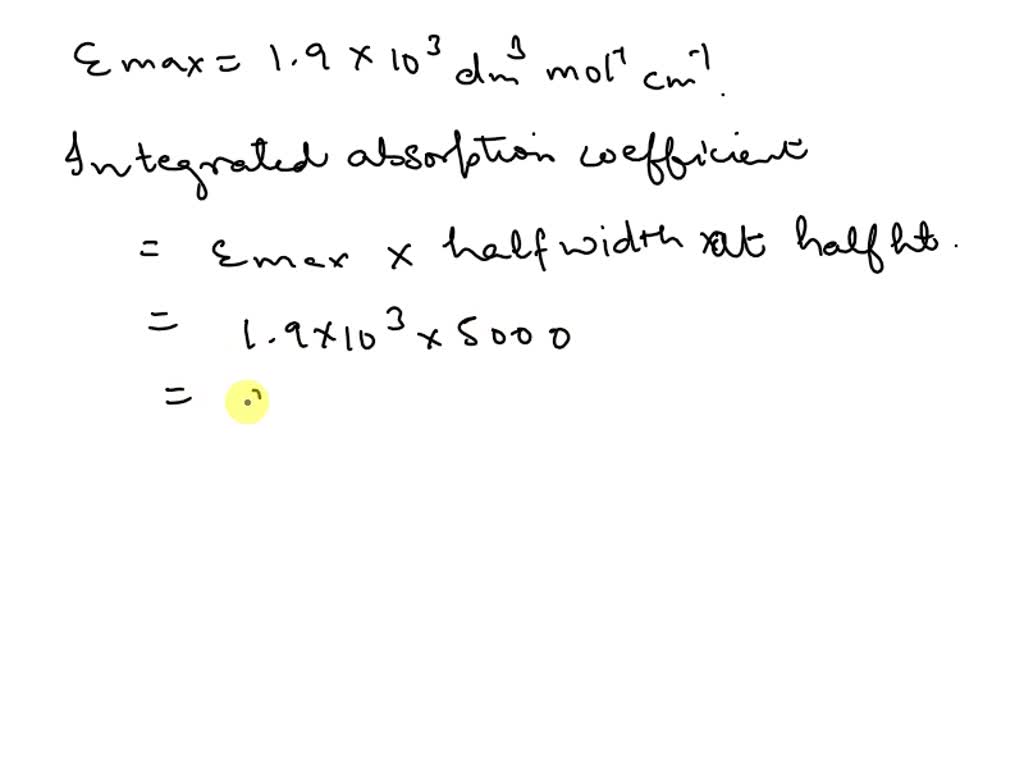 Ɛmax = 1.9 × 10³ dm³ mol⁻¹ cm⁻¹.
Integrated absorption coefficient
= Ɛmax × halfwidth at half ht.
= 1.9×10³ × 5000
=